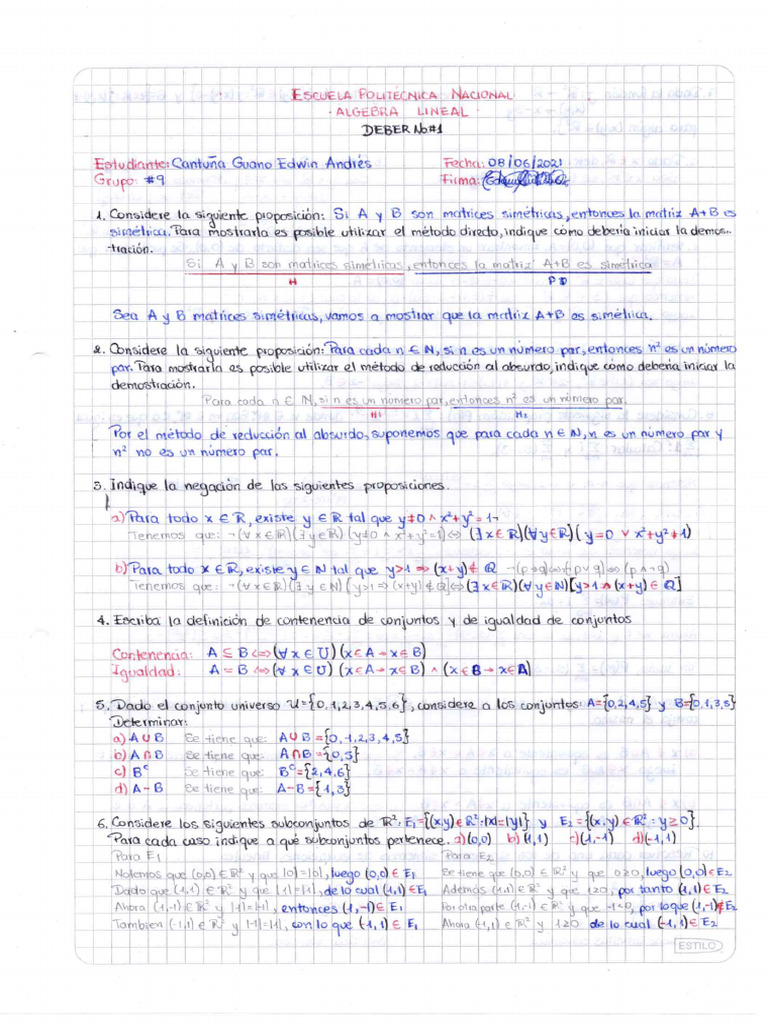 ESCUELA POLITÉCNICA NACIONAL
ALGEBRA LINEAL
DEBER No#1
Estudiante: Cantuña Guano Edwin Andrés Fecha: 08/06/2021
Grupo: #9 Firma:
1. Considere la siguiente proposición: Si A y B son matrices simétricas, entonces la matriz A+B es
simétrica. Para mostrarla es posible utilizar el método directo, indique cómo debería iniciar la demos-
tración.
Si A y B son matrices simétricas, entonces la matriz A+B es simétrica
H P D
Sea A y B matrices simétricas, vamos a mostrar que la matriz A+B es simétrica.
2. Considere la siguiente proposición: Para cada n ∈ N, si n es un número par, entonces n² es un número
par. Para mostrarla es posible utilizar el método de reducción al absurdo, indique cómo debería iniciar la
demostración.
Para cada n ∈ N, si n es un número par, entonces n² es un número par.
H1 H2
Por el método de reducción al absurdo, suponemos que para cada n ∈ N, n es un número par y
n² no es un número par.
3. Indique la negación de las siguientes proposiciones.
a) Para todo x ∈ ℝ, existe y ∈ ℝ tal que y≠0 ∧ x²+y²=1
Tenemos que: ¬(∀x∈ℝ)(∃y∈ℝ)(y≠0 ∧ x²+y²=1) ⇔ (∃x∈ℝ)(∀y∈ℝ)(y=0 ∨ x²+y²≠1)
b) Para todo x ∈ ℝ, existe y ∈ N tal que y>1 ⇒ (x+y)∉ℚ ¬(p→q)⇔¬(¬p∨q)⇔(p∧¬q)
Tenemos que: ¬(∀x∈ℝ)(∃y∈N)(y>1 ⇒ (x+y)∉ℚ) ⇔ (∃x∈ℝ)(∀y∈N)[y>1 ∧ (x+y)∈ℚ]
4. Escriba la definición de contenencia de conjuntos y de igualdad de conjuntos
Contenencia: A ⊆ B ⇔ (∀x∈U)(x∈A → x∈B)
Igualdad: A = B ⇔ (∀x∈U)(x∈A → x∈B) ∧ (x∈B → x∈A)
5. Dado el conjunto universo U={0,1,2,3,4,5,6}, considere a los conjuntos: A={0,2,4,5} y B={0,1,3,5}
Determinar:
a) A∪B Se tiene que: A∪B={0,1,2,3,4,5}
b) A∩B Se tiene que: A∩B={0,5}
c) Bᶜ Se tiene que: Bᶜ={2,4,6}
d) A-B Se tiene que: A-B={1,3}
6. Considere los siguientes subconjuntos de ℝ²: E₁={(x,y)∈ℝ²:|x|=|y|} y E₂={(x,y)∈ℝ²: y≥0}.
Para cada caso indique a qué subconjuntos pertenece. a)(0,0) b)(1,1) c)(1,-1) d)(-1,1)
Para E₁ Para E₂
Notemos que (0,0)∈ℝ² y que |0|=|0|, luego (0,0)∈E₁ Se tiene que (0,0)∈ℝ² y que 0≥0, luego (0,0)∈E₂
Dado que (1,1)∈ℝ² y que |1|=|1|, de lo cual (1,1)∈E₁ Además (1,1)∈ℝ² y que 1≥0, por tanto (1,1)∈E₂
Ahora (1,-1)∈ℝ² y |1|=|-1|, entonces (1,-1)∈E₁ Por otra parte (1,-1)∈ℝ² y que -1<0, por lo que (1,-1)∉E₂
Tambien (-1,1)∈ℝ² y |-1|=|1|, con lo que (-1,1)∈E₁ Ahora (-1,1)∈ℝ² y 1≥0 de lo cual (-1,1)∈E₂
ESTILO